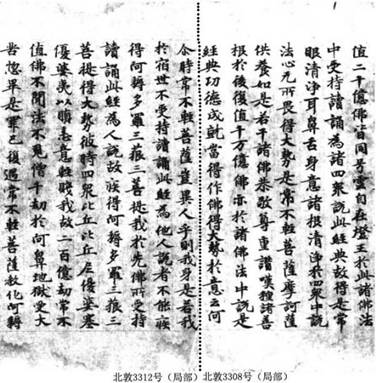 值二千億佛皆同号雲自在燈王於此諸佛法
中受持讀誦為諸四衆說此經典故得是常
眼清淨耳鼻舌身意諸根清淨於四衆中說
法心无所畏得大勢是常不輕菩薩摩訶薩
供養如是若干諸佛恭敬尊重讃嘆種諸善
根於後復值千万億佛亦於諸佛法中說是
經典功德成就當得作佛得大勢於意云何
尒時常不輕菩薩豈異人乎則我身是若我
於宿世不受持讀誦此經為他人說者不能疾
得阿耨多羅三藐三菩提我於先佛所受持
讀誦此經為人說故疾得阿耨多羅三藐三
菩提得大勢彼時四衆比丘比丘尼優婆塞
優婆夷以瞋恚意輕賤我故二百億劫常不
值佛不聞法不見僧千劫於阿鼻地獄受大
苦惱畢是罪已復遇常不輕菩薩教化阿耨
北敦3312号（局部） 北敦3308号（局部）